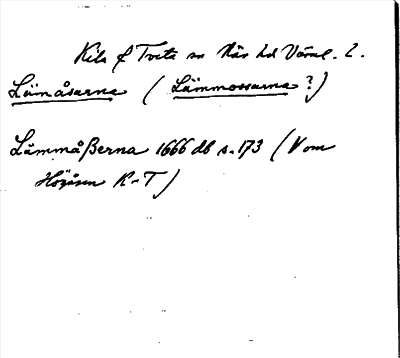 Kila & Tveta sn Näs hd Värml. l.
Lämåsarna (Lämmossarna?)
Lämmåßerna 1666 db s. 173 (V om
Högåsen K-T)